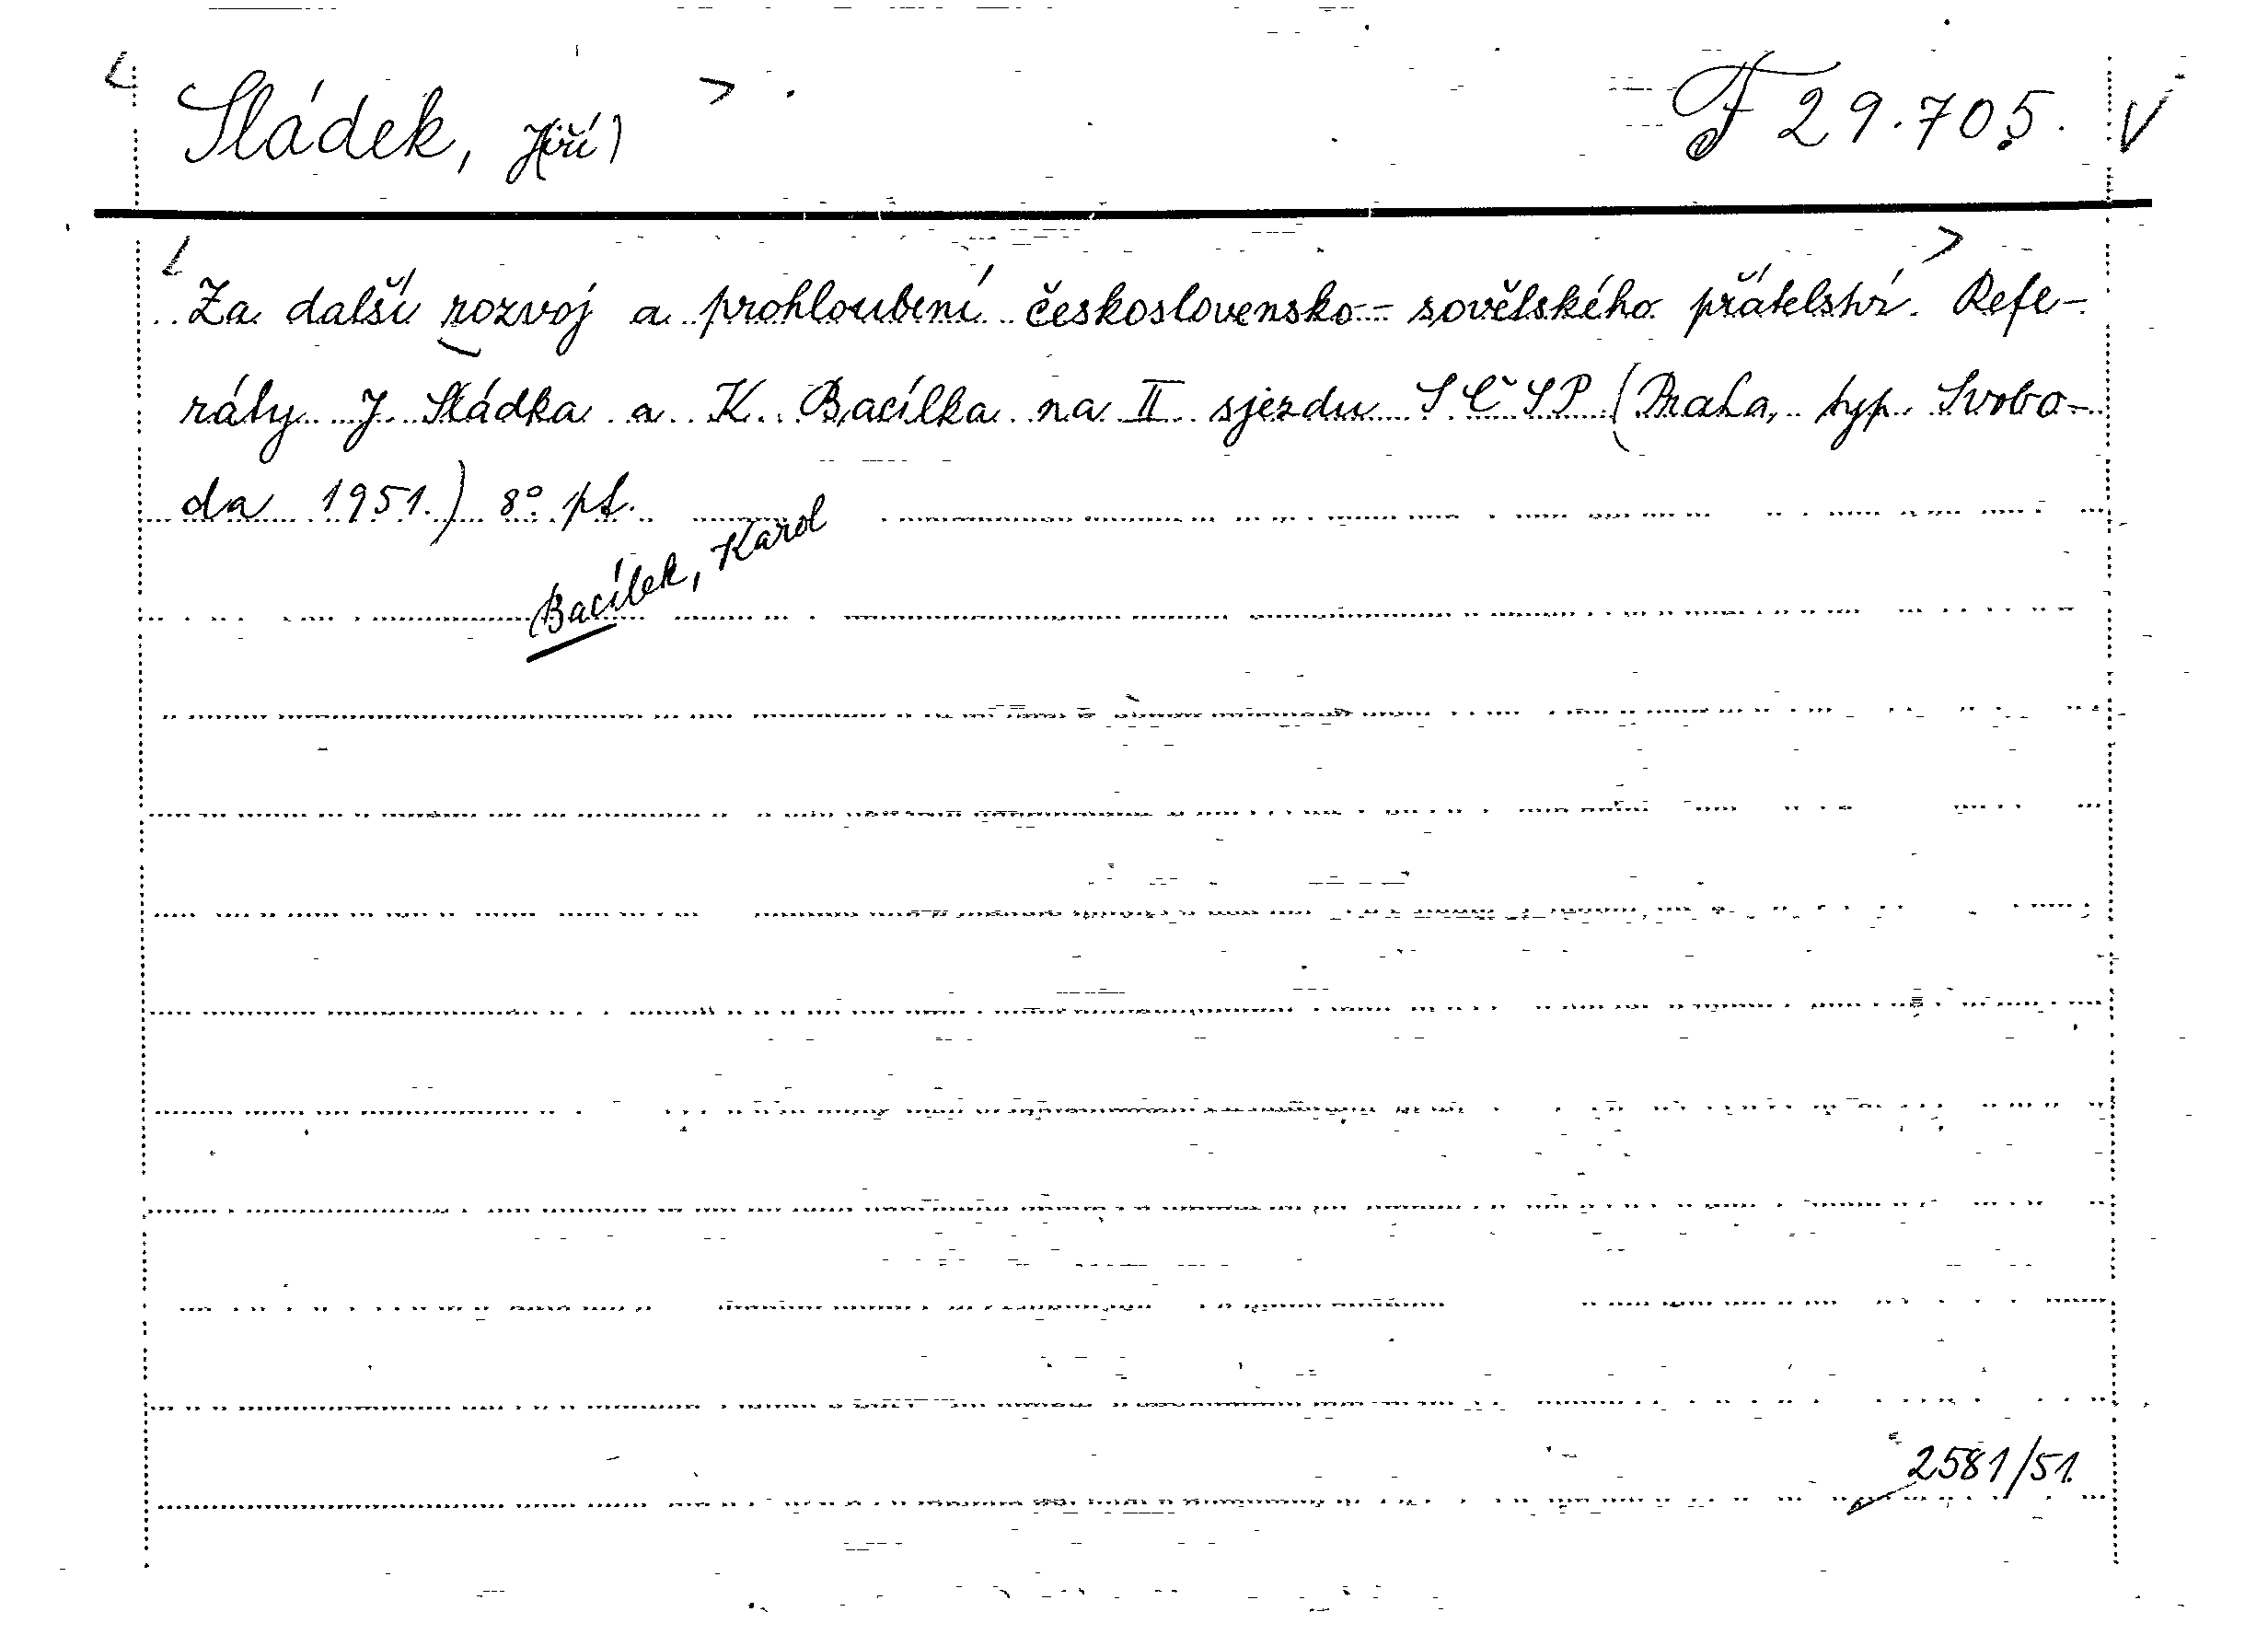 Sládek, J(iří) F 29.705. V
Za další rozvoj a prohloubení československo-sovětského přátelství. Refe-
ráty J. Sládka a K. Bacílka na II sjezdu SČSP (Praha, typ. Svobo-
da 1951.) 8° pf.
Bacílek, Karol
2581/51.